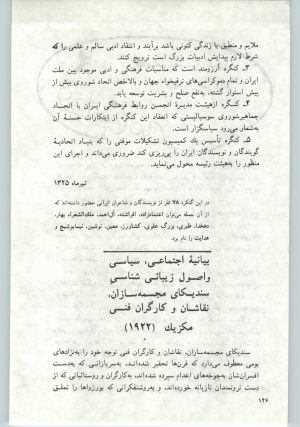 ملایم و منطبق با زندگی کنونی باشد برآیند و انتقاد ادبی سالم و علمی را که
شرط لازم پیدایش ادبیات بزرگ است ترویج کنند.
۳ـ کنگره آرزومند است که مناسبات فرهنگی و ادبی موجود بین ملت
ایران و تمام دموکراسی‌های ترقیخواه جهان و بالاخص اتحاد شوروی بیش از
پیش استوار گشته، به‌نفع صلح و بشریت توسعه یابد.
۴ـ کنگره ازهیئت مدیرۀ انجمن روابط فرهنگی ایران با اتحاد
جماهیرشوروی سوسیالیستی که انعقاد این کنگره از ابتکارات حسنۀ آن
به‌شمار می‌رود سپاسگزار است.
۵ـ کنگره تأسیس یک کمیسیون تشکیلات موقتی را که بنیاد اتحادیۀ
گویندگان و نویسندگان ایران را پی‌ریزی کند ضروری می‌داند و اجرای این
منظور را به‌هیئت رئیسه محول می‌نماید.
تیرماه ۱۳۲۵
در این کنگره ۷۸ نفر از نویسندگان و شاعران ایرانی حضور داشته‌اند که
از آن جمله می‌توان اعتمادزاده، افراشته، آل‌احمد، ملک‌الشعراء بهار،
دهخدا، طبری، بزرگ علوی، کشاورز، معین، نوشین، نیمایوشیج و
هدایت را نام برد.
بیانیۀ اجتماعی، سیاسی
واصول زیبائی شناسی
سندیکای مجسمه‌سازان،
نقاشان و کارگران فنسی
مکزیک (۱۹۲۲)
سندیکای مجسمه‌سازان، نقاشان و کارگران فنی توجه خود را به‌نژادهای
بومی معطوف می‌دارد که قرن‌ها تحقیر شده‌اند، به‌سربازانی که به‌دست
افسران‌شان به‌جوخه‌های اعدام سپرده شده‌اند، به‌کارگران و روستائیانی که از
دست ثروتمندان تازیانه خورده‌اند، و به‌روشنفکرانی که بورژواها را تملق
۱۴۶